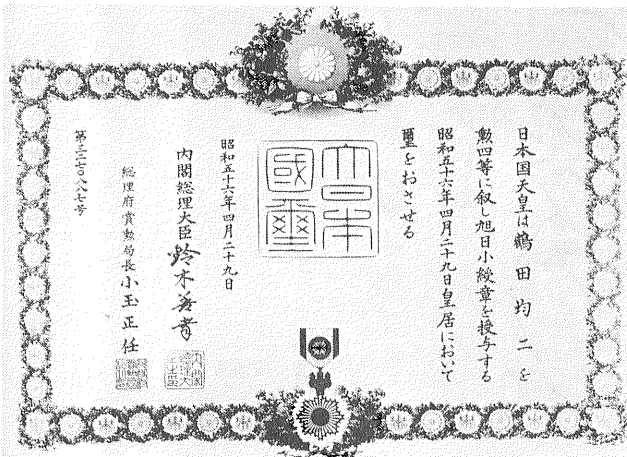 日本国天皇は鶴田均二を
勲四等に叙し旭日小綬章を授与する
昭和五十六年四月二十九日皇居において
璽をおさせる
大日本
國璽
昭和五十六年四月二十九日
内閣総理大臣 鈴木善幸
総理府賞勲局長 小玉正任
第三二七〇八七号